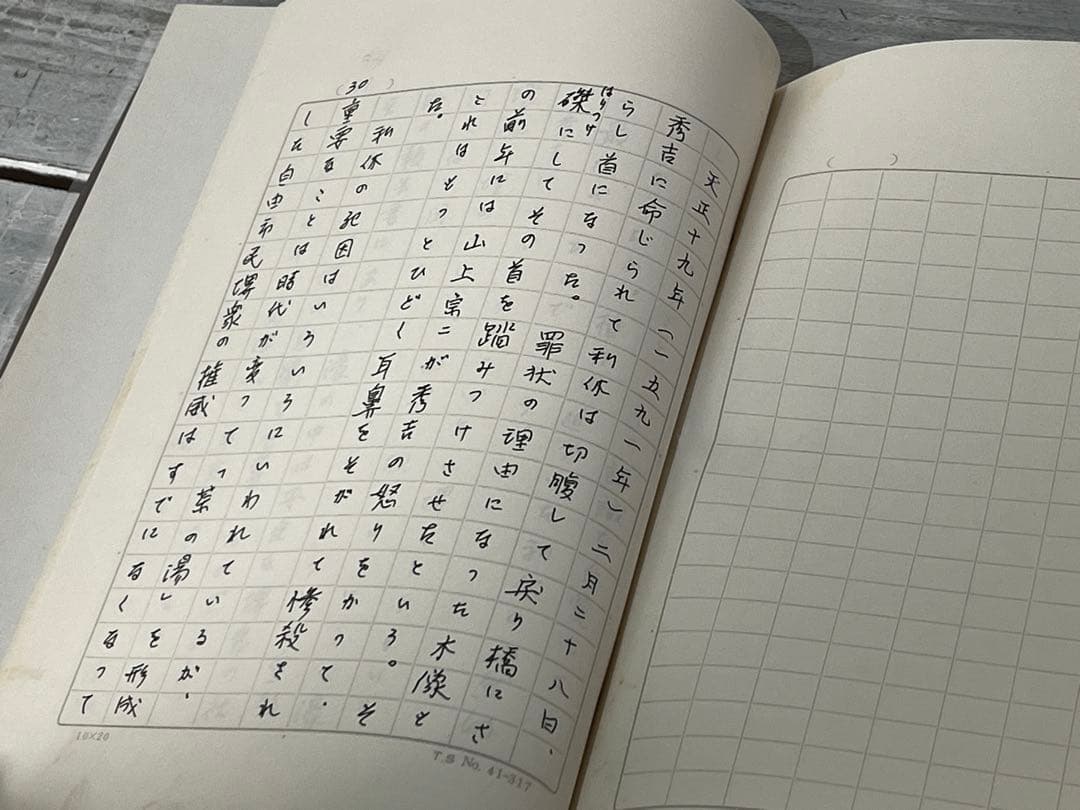 (30)
天正十九年(一五九一年)二月二十八日、
秀吉に命じられて利休は切腹して戻り橋にさ
らし首になった。罪状の理由になった木像も
はりつけ
磔にしてその首を踏みつけさせたという。そ
の前年には山上宗二が秀吉の怒りをかって、そ
これはもっとひどく耳鼻をそがれて惨殺され
た。
利休の死因はいろいろにいわれているが、
重要なことは時代が変って「茶の湯」を形成
した自由市民堺衆の権威はすでになくなって
10×20
T.S No. 41-317
( )